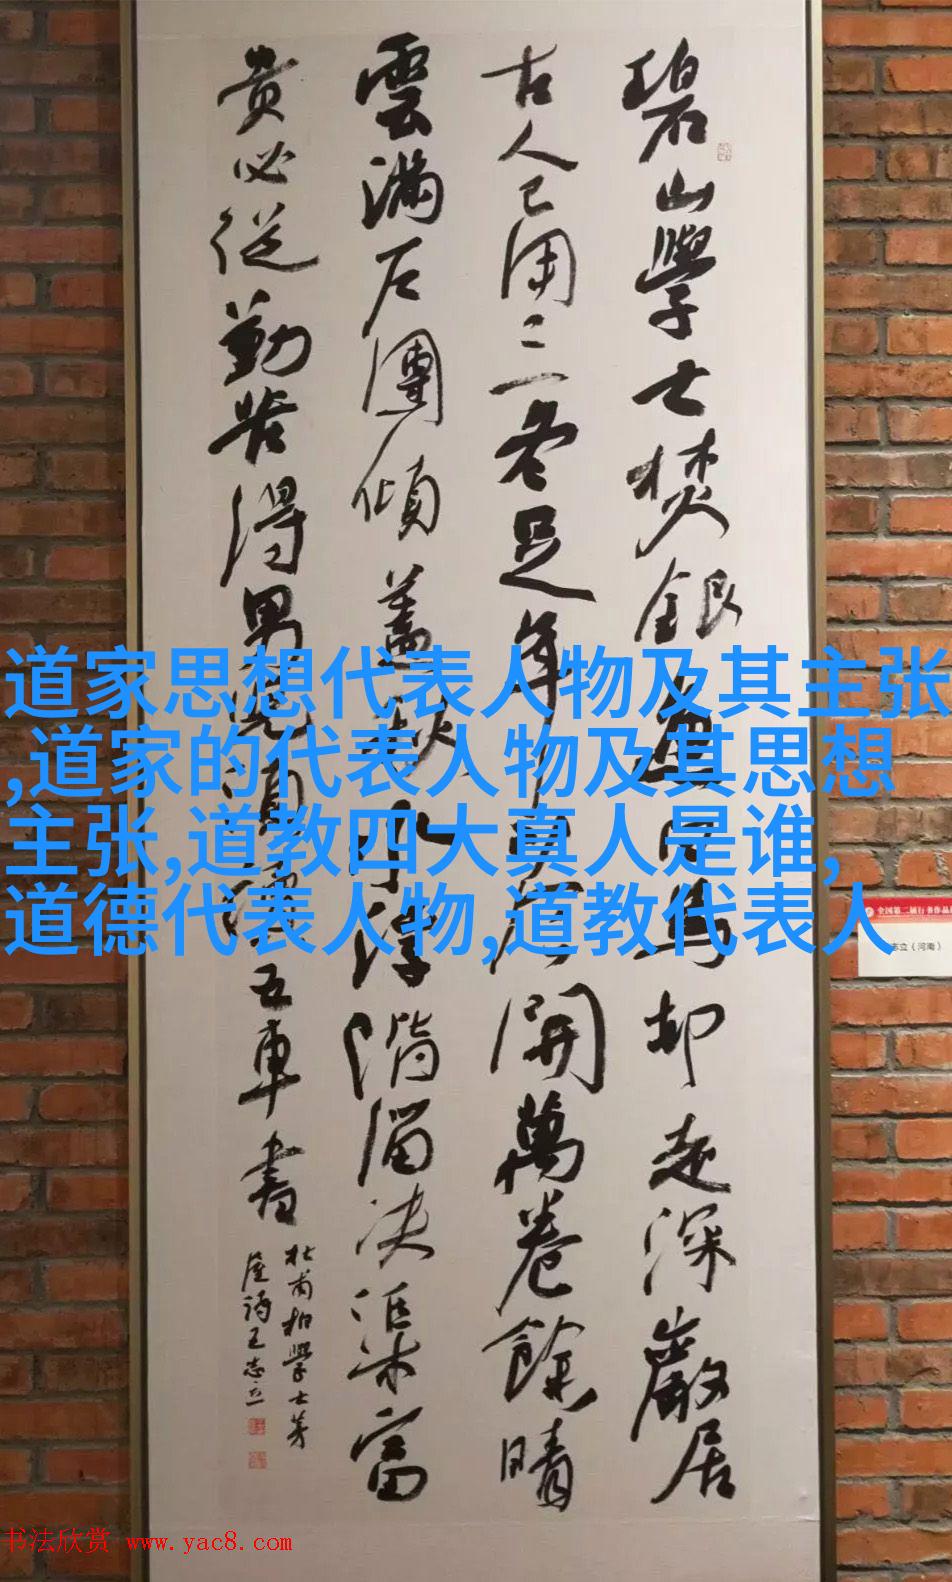 道家思想代表人物及其主张
,道家的代表人物及其思想
主张,道教四大真人是谁,
道德代表人物,道教代表人
碧山學士焚銀魚白馬却走深巖居
古人已用三冬足年開萬卷餘晴
雲滿戶團傾蓋秋水浮階溜決渠富
貴必從勤苦得男兒須讀五車書
杜甫柏學士茅
屋詩王志立
全国第二届行书作品
志立（河南）
书法欣赏 www.yac8.com